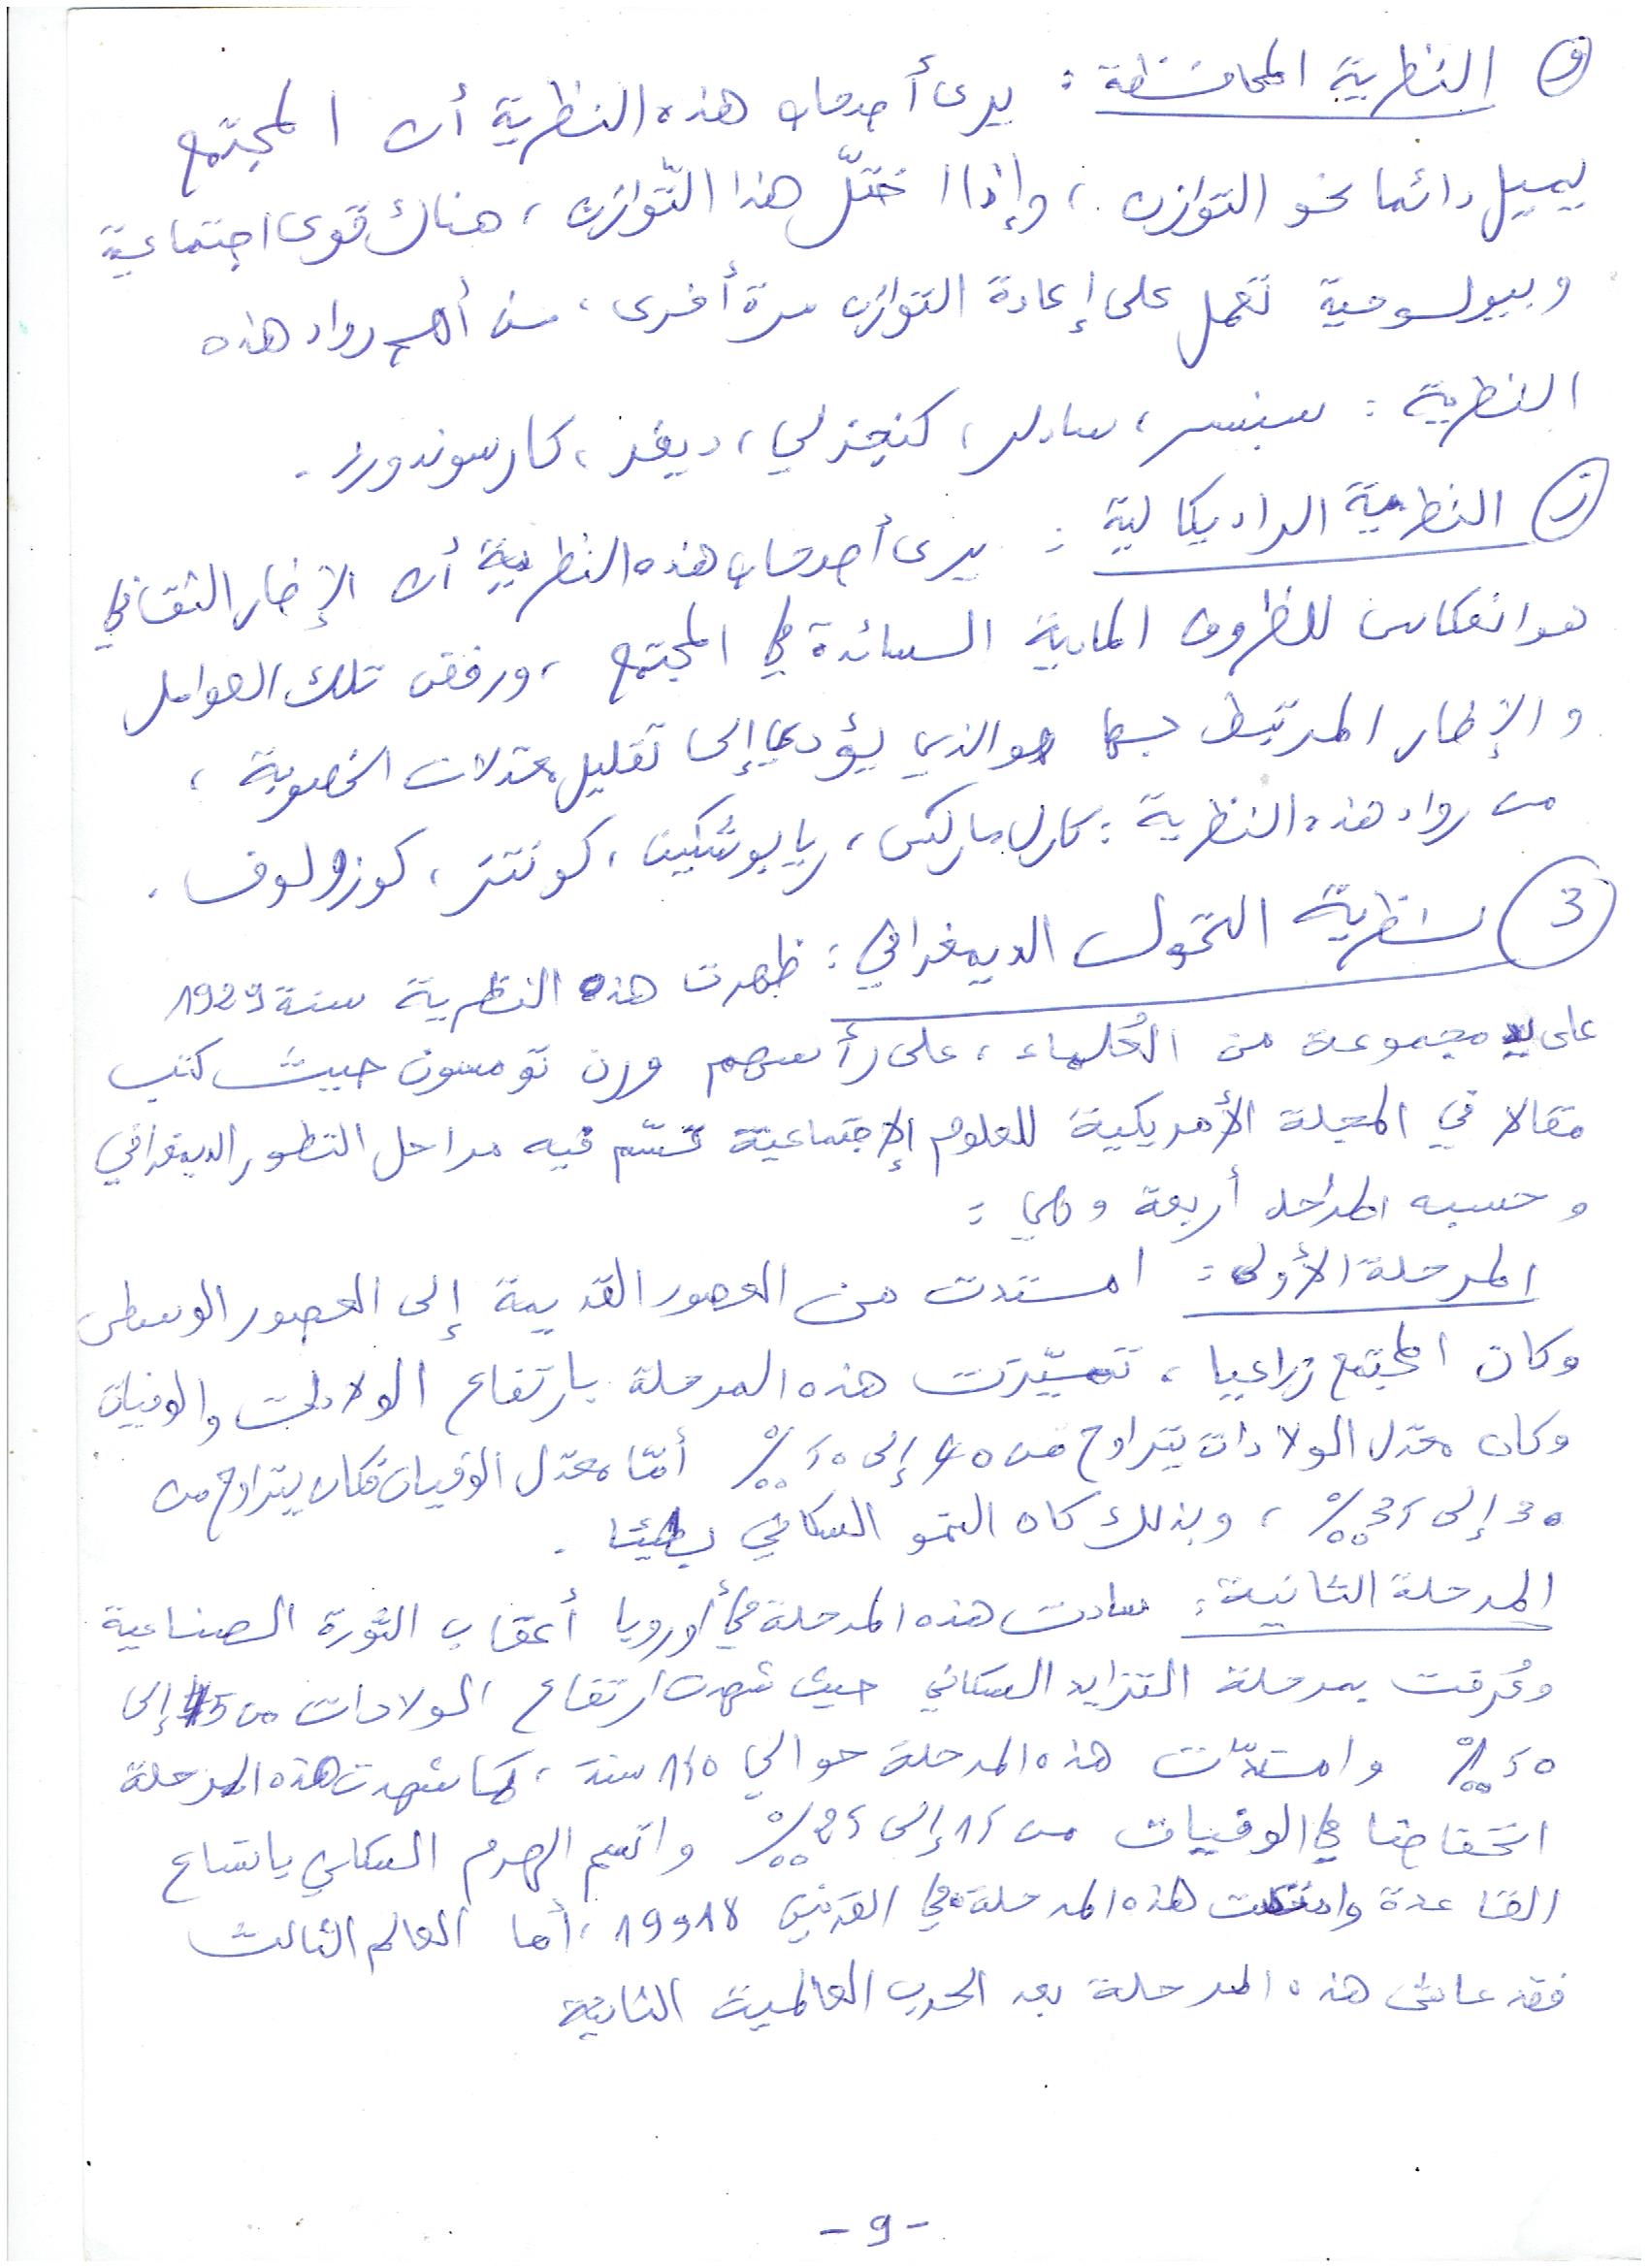 و) النظرية المحافظة: يرى أصحاب هذه النظرية أن المجتمع
يميل دائما نحو التوازن، وإذا اختلّ هذا التّوازن، هناك قوى اجتماعية
وبيولوجية تعمل على إعادة التوازن مرة أخرى، من أهم رواد هذه
النظرية: سبنسر، سادلر، كنجزلي، ديفز، كارسوندورز.
ز) النظرية الراديكالية: يرى أصحاب هذه النظرية أن الإطار الثقافي
هو انعكاس للظروف المادية السائدة في المجتمع، ورفض تلك العوامل
والإطار المرتبط بها هو الذي يؤدي إلى تقليل معدلات الخصوبة،
من رواد هذه النظرية: كارل ماركس، ريابوشكين، كونتز، كوزولوف.
3) نظرية التحول الديمغرافي: ظهرت هذه النظرية سنة 1929
على يد مجموعة من العُلماء، على رأسهم ورن تومسون حيث كتب
مقالا في المجلة الأمريكية للعلوم الإجتماعية قسّم فيه مراحل التطور الديمغرافي
وحسبه المراحل أربعة وهي:
المرحلة الأولى: امتدت من العصور القديمة إلى العصور الوسطى
وكان المجتمع زراعيا، تميّزت هذه المرحلة بارتفاع الولادات والوفيات
وكان معدّل الولادات يتراوح من 40 إلى 50 ‰ أمّا معدّل الوفيات فكان يتراوح من
30 إلى 35 ‰، وبذلك كان النمو السكاني بطيئا.
المرحلة الثانية: سادت هذه المرحلة في أوروبا أعقاب الثورة الصناعية
وعُرفت بمرحلة التزايد السكاني حيث شهدت ارتفاع الولادات من 45 إلى
50 ‰ وامتدّت هذه المرحلة حوالي 150 سنة، كما شهدت هذه المرحلة
انخفاضا في الوفيات من 15 إلى 25 ‰ واتسم الهرم السكاني باتساع
القاعدة وامتدت هذه المرحلة في القرنين 18 و 19، أما العالم الثالث
فقد عاش هذه المرحلة بعد الحرب العالمية الثانية
- 9 -